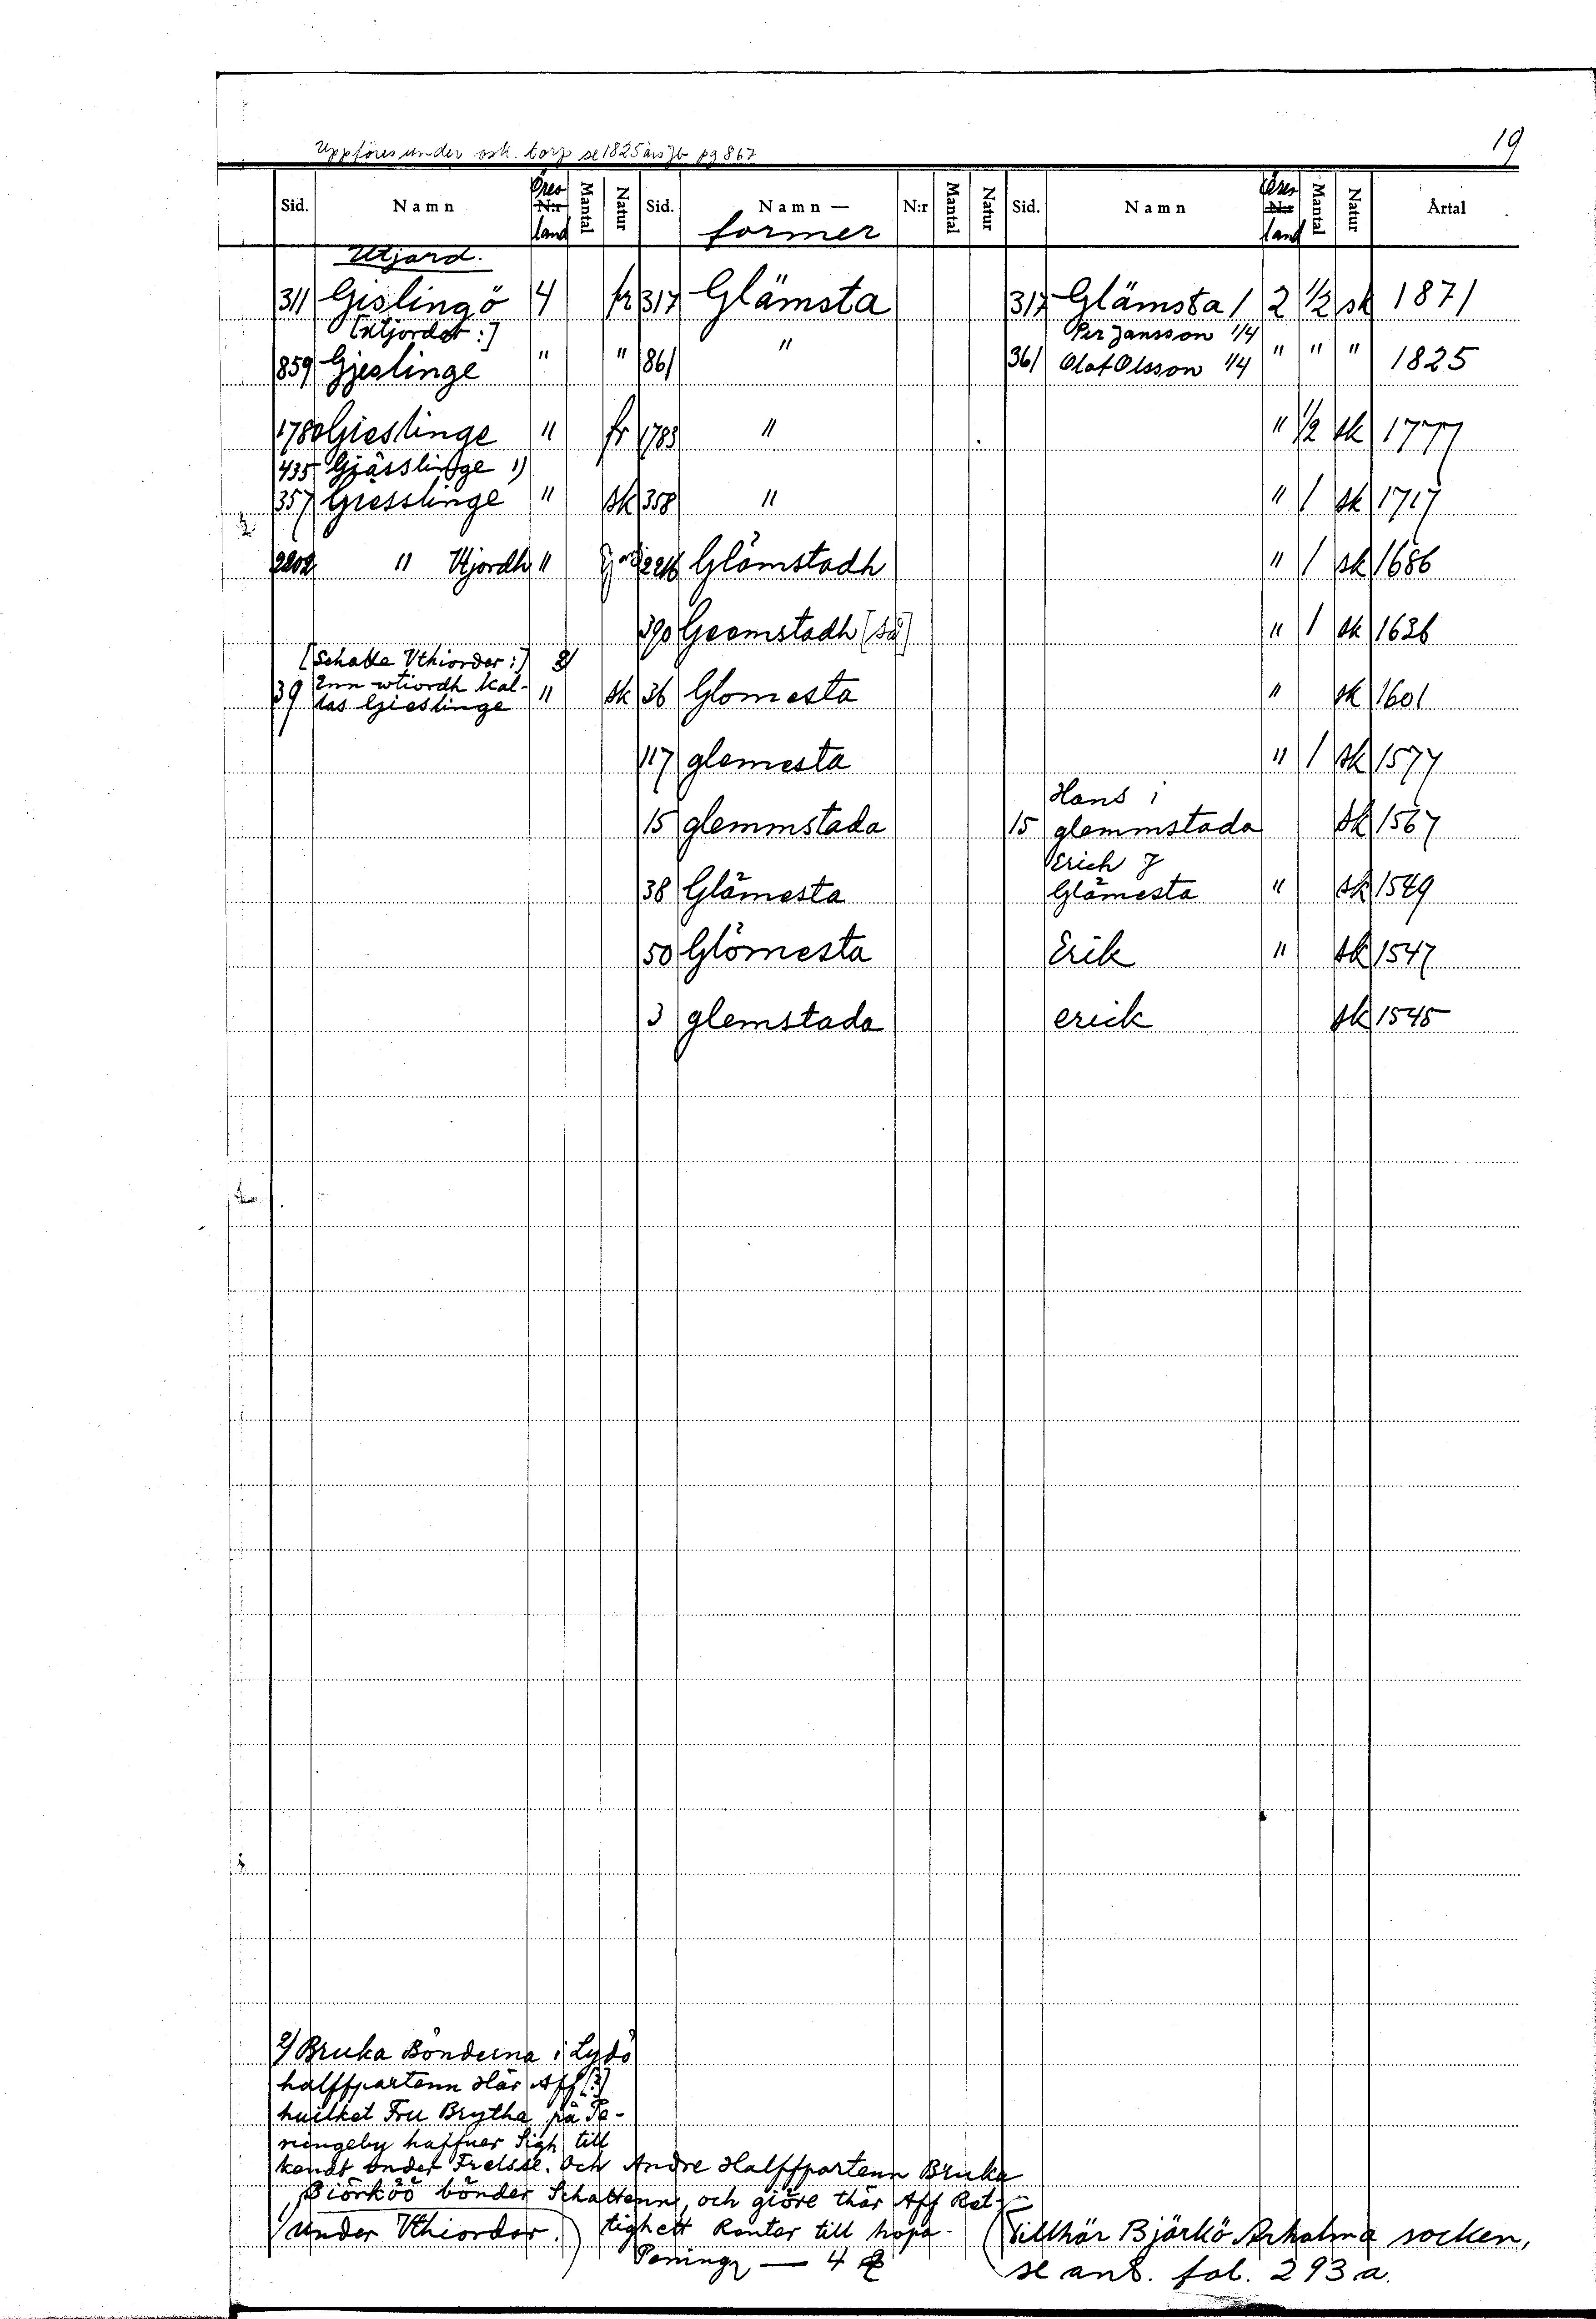 19
Uppföres under osk. torp se 1825 års Jb pg 867
Sid. Namn Öres N:r land Mantal Natur Sid. Namn — former N:r Mantal Natur Sid. Namn Öres N:r land Mantal Natur Årtal
Utjord.
311 Gislingö 4 fr 317 Glämsta 317 Glämsta 1 2 1/2 sk 1871
[Utjordar:] Per Jansson 1/4
859 Gjeslinge " " 861 " 361 Olof Olsson 1/4 " " " 1825
1780 Gieslinge " fr 1783 " " 1/2 sk 1777
435 Gjässlinge 1)
357 Giesslinge " sk 358 " " 1 sk 1717
2202 " Utjordh " 2216 Glömstadh " 1 sk 1686
390 Geomstadh [så] " 1 sk 1636
[Schatte Vthiorder:] 2/
39 Enn wtiordh kal-
las Gieslinge " sk 36 Glomesta " sk 1601
117 glemesta " 1 sk 1577
Hans i
15 glemmstada 15 glemmstada sk 1567
Erich J
38 Glämesta Glämesta " sk 1549
50 Glömesta Erik " sk 1547
3 glemstada erick sk 1545
2/ Bruka Bönderna i Lydö
halffpartenn Här Aff [?]
huilket Fru Brytha på Pe-
ningeby haffuer Sigh till
kendt onder Frelsse. Och Andre Halffpartenn Bruka
Biörköö bönder Schattenn, och giöre thär Aff Ret-
tighett Rantar till hopa-
Peningr — 4
1/ Under Vthiordar.
Tillhör Björkö-Arholma socken,
se ant. fol. 293 a.